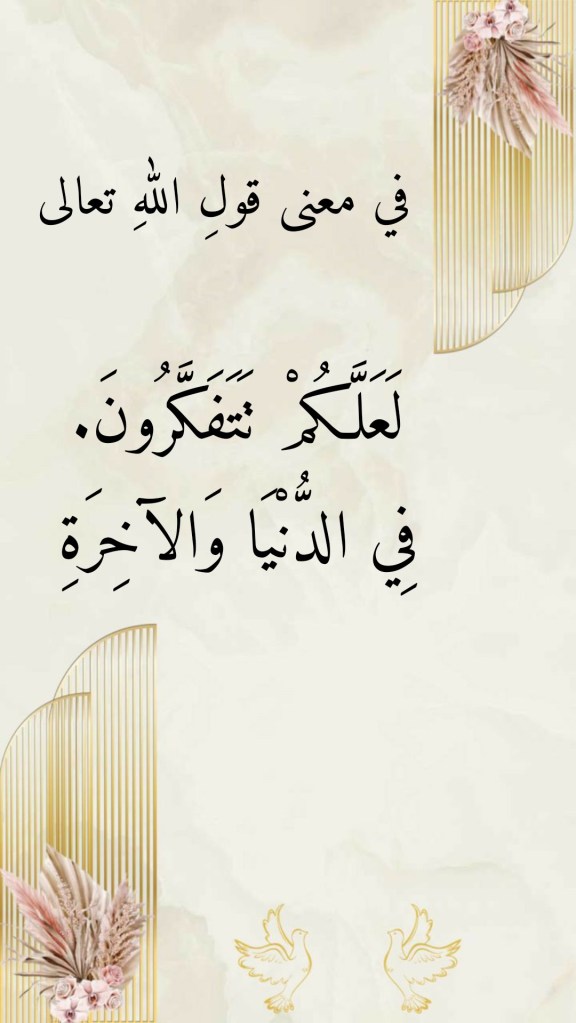 في معنى قولِ اللهِ تعالى
لَعَلَّكُمْ تَتَفَكَّرُونَ.
فِي الدُّنْيَا وَالآخِرَةِ